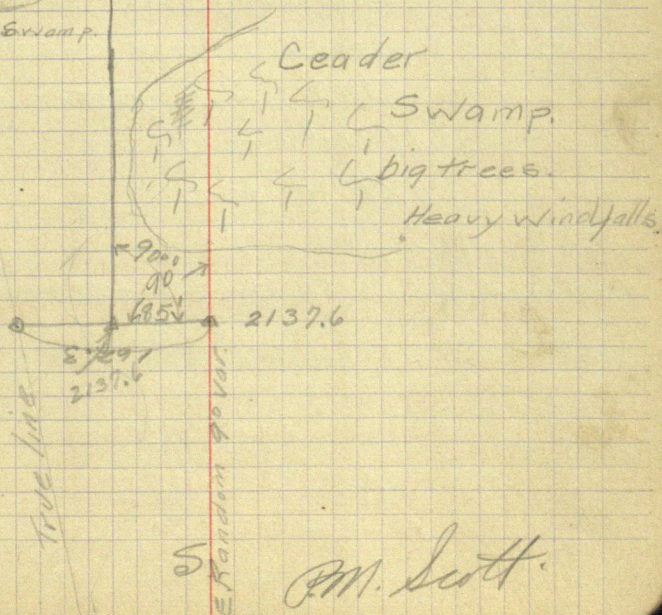 Swamp.
Ceader
Swamp.
big trees.
Heavy Windfalls
90°
90
685
2137.6
2137.6
True line
Random 9° Var.
S
P.M. Scott.